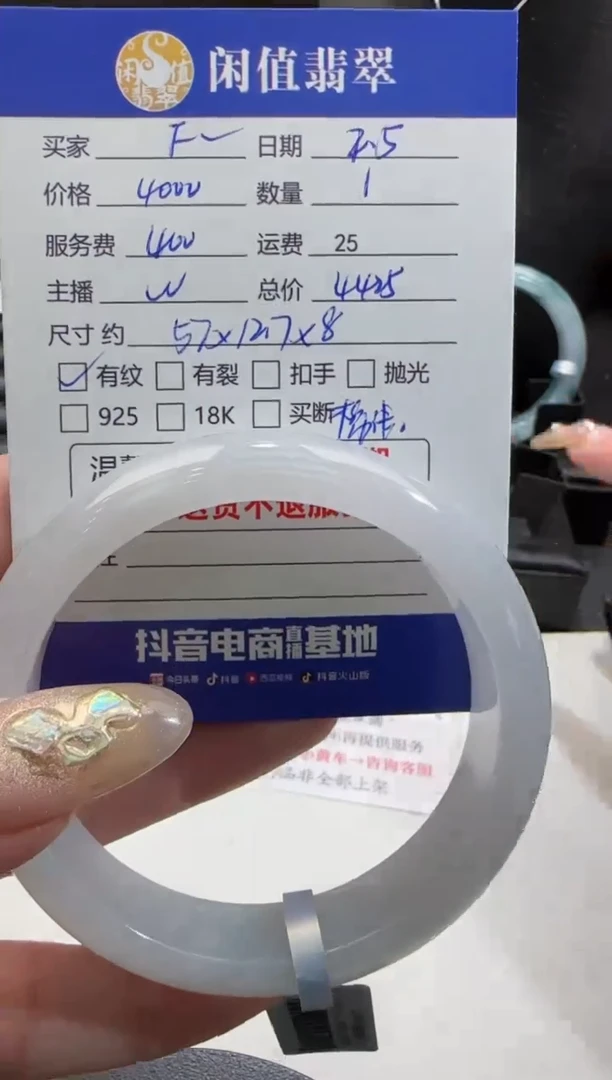 闲值翡翠
闲值翡翠
买家 F 日期 7.5
价格 4000 数量 1
服务费 400 运费 25
主播 W 总价 4425
尺寸 约 57x12.7x8
☑ 有纹 ☐ 有裂 ☐ 扣手 ☐ 抛光
☐ 925 ☐ 18K ☐ 买断
温
退货不退服
抖音电商直播基地
今日头条 抖音 西瓜视频 抖音火山版
再提供服务
黄车→咨询客服
品非全部上架